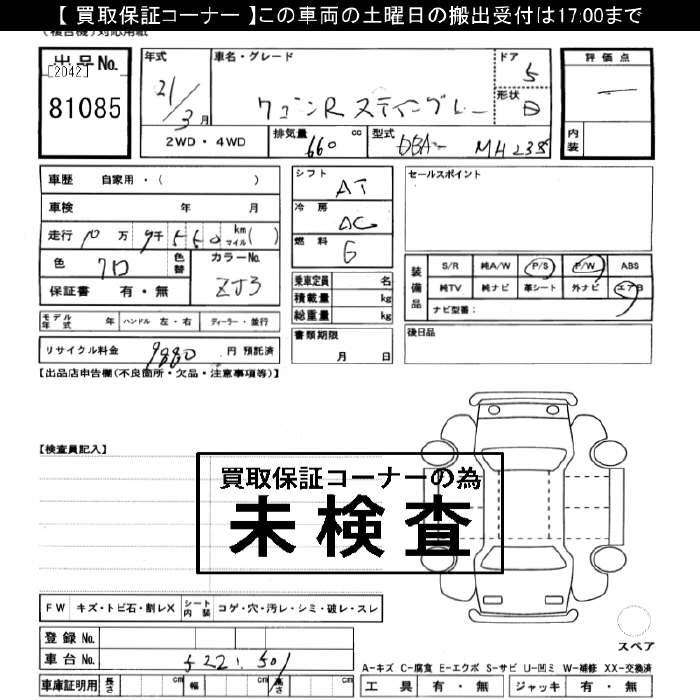 【 買取保証コーナー 】この車両の土曜日の搬出受付は17:00まで
(複合機)対応用紙
出品No. [2042] 81085
年式 21/3月
車名・グレード ワゴンR スティングレー
ドア 5
形状 D
評価点 —
内装
2WD・4WD
排気量 660 cc
型式 DBA- MH23S
車歴 自家用・( )
車検 年 月
走行 10万 9千 550 km マイル( )
色 クロ 色替 カラーNo. ZJ3
保証書 有・無
シフト AT
冷房 AC
燃料 G
乗車定員 名
積載量 kg
総重量 kg
セールスポイント
装備品 S/R 純A/W P/S P/W ABS
純TV 純ナビ 革シート 外ナビ エアB
ナビ型番:
モデル年式 年 ハンドル 左・右 ディーラー・並行
書類期限 月 日
後日品
リサイクル料金 9880 円 預託済
【出品店申告欄(不良箇所・欠品・注意事項等)】
【検査員記入】
買取保証コーナーの為
未検査
FW キズ・トビ石・割レX シート内装 コゲ・穴・汚レ・シミ・破レ・スレ
登録No.
車台No. 522.501
車庫証明用 長さ cm 幅 cm 高さ cm
スペア
A-キズ C-腐食 E-エクボ S-サビ U-凹ミ W-補修 XX-交換済
工具 有・無 ジャッキ 有・無